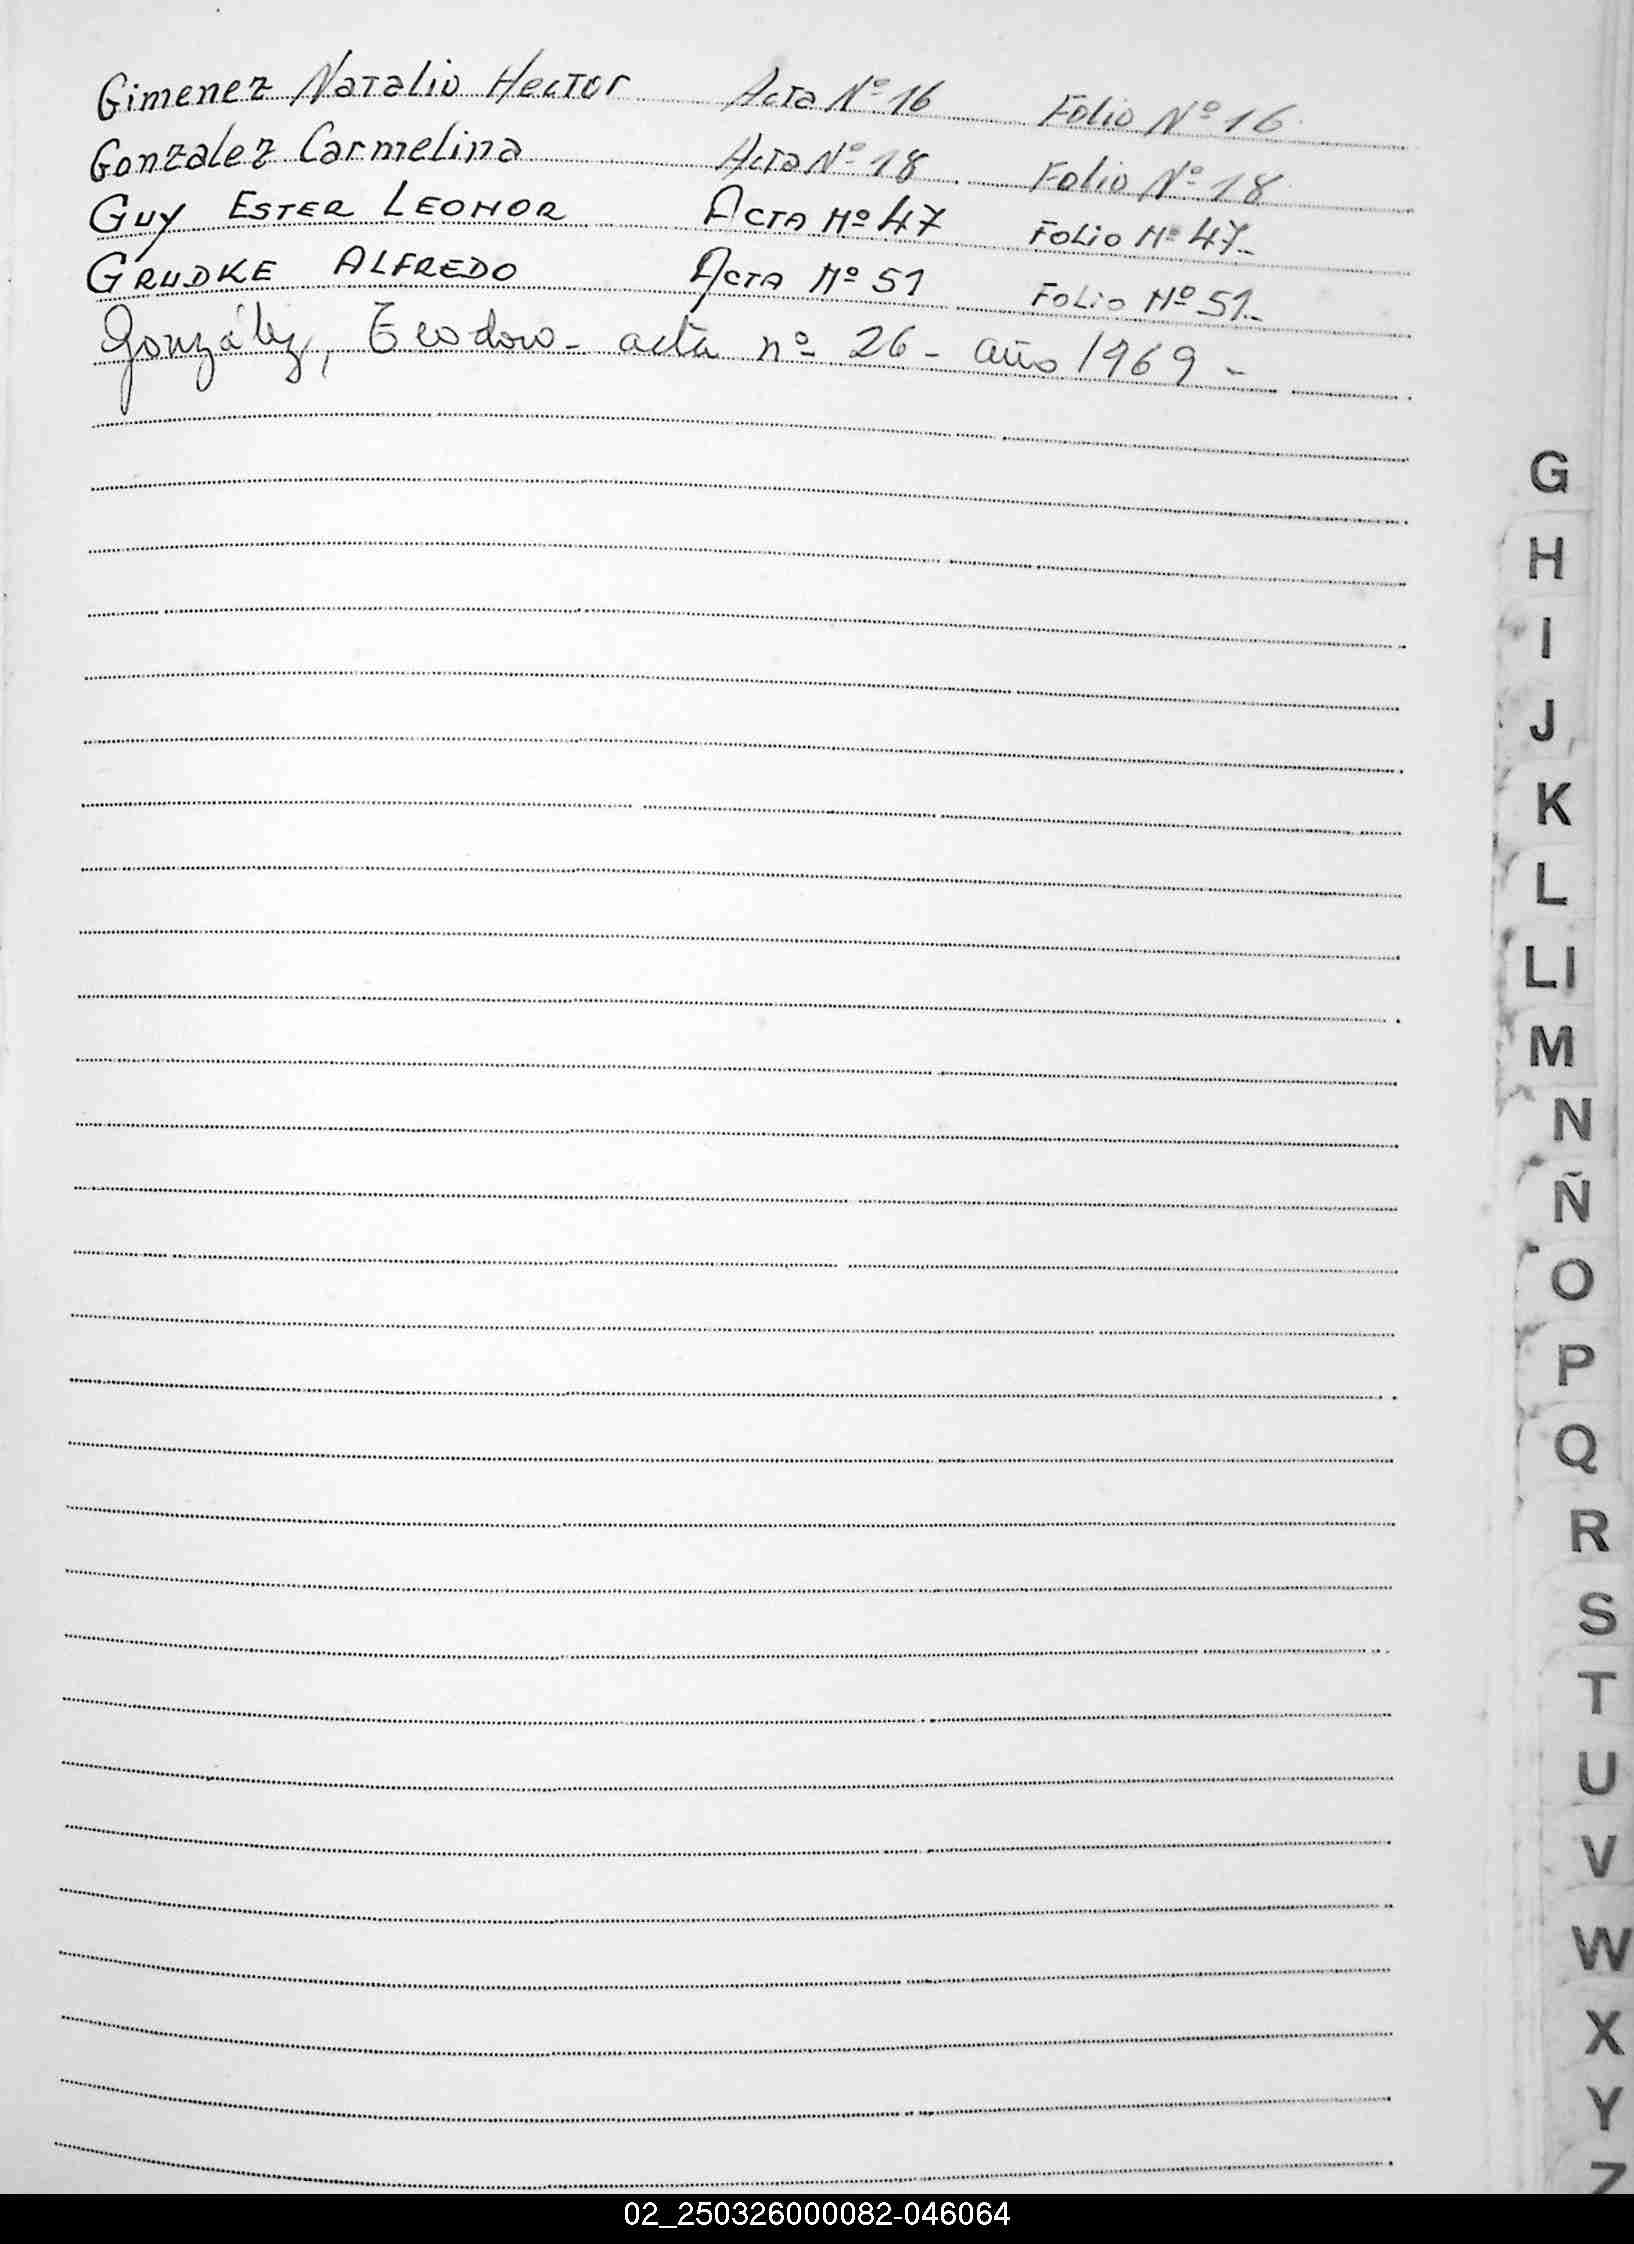 Gimenez Natalio Hector Acta Nº 16 Folio Nº 16
Gonzalez Carmelina Acta Nº 18 Folio Nº 18
GUY ESTER LEONOR ACTA Nº 47 FOLIO Nº 47-
GRUDKE ALFREDO ACTA Nº 51 FOLIO Nº 51-
González, Teodoro - acta nº 26 - año 1969 -
G
H
I
J
K
L
Ll
M
N
Ñ
O
P
Q
R
S
T
U
V
W
X
Y
Z
02_250326000082-046064